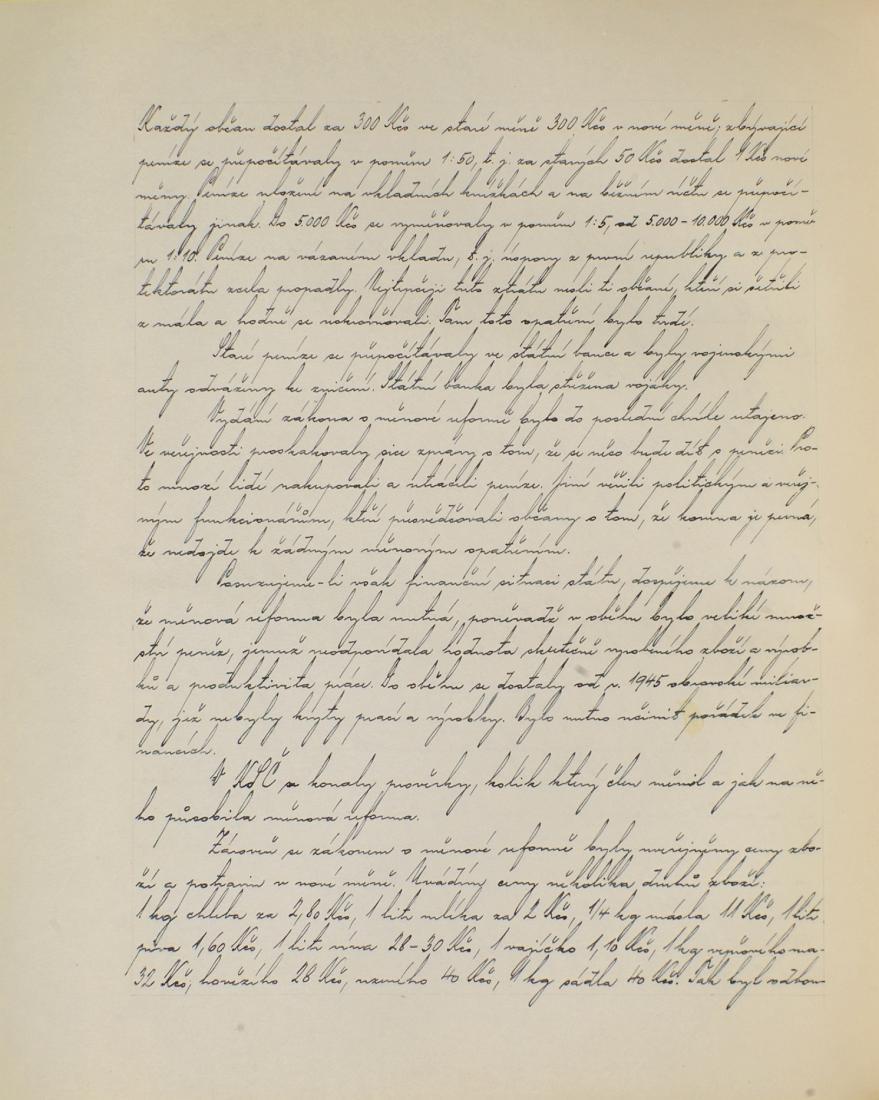 Každý občan dostal za 300 Kčs ve staré měně 300 Kčs v nové měně; zbývající
peníze se přepočítávaly v poměru 1:50, t. j. za starých 50 Kčs dostal 1 Kčs nové
měny. Peníze uložené na vkladních knížkách a na běžném účtu se přepočí-
távaly jinak. Do 5.000 Kčs se vyměňovaly v poměru 1:5, od 5.000 – 10.000 Kčs v pomě-
ru 1:10. Peníze na vázaném vkladu, t. j. úspory z první republiky a z pro-
tektorátu zcela propadly. Nejtrpčeji tuto ztrátu nesli ti občané, kteří si šetřili
z mála a hodně se uskromňovali. Pam toto opatření bylo tvrdé.
Staré peníze se přepočítávaly ve státní bance a byly vojenskými
auty odváženy ke zničení. Státní banka byla střežena vojáky.
Vydání zákona o měnové reformě bylo do poslední chvíle utajeno.
Ve veřejnosti proskakovaly sice zprávy o tom, že se něco bude dít s penězi. Pro-
to mnozí lidé nakupovali a utráceli peníze. Jiní věřili politickým a veřej-
ným funkcionářům, kteří přesvědčovali občany o tom, že koruna je pevná,
že nedojde k žádným měnovým opatřením.
Posuzujeme-li však finanční situaci státu, dospějeme k názoru,
že měnová reforma byla nutná, poněvadž v oběhu bylo veliké množ-
ství peněz, jemuž neodpovídala hodnota skutečně vyrobeného zboží a výrob-
ků a produktivita práce. Do oběhu se dostaly od r. 1945 obrovské miliar-
dy, jež nebyly kryty prací a výrobky. Bylo nutno učinit pořádek ve fi-
nancích.
V KSČ se konaly prověrky, kolik který člen měnil a jak na ně-
ho působila měnová reforma.
Zároveň se zákonem o měnové reformě byly uveřejněny ceny zbo-
ží a potravin v nové měně. Uvádím ceny několika druhů zboží:
1 kg chleba za 2,80 Kčs, 1 litr mléka za 2 Kčs, 1/4 kg másla 11 Kčs, 1 litr
piva 1,60 Kčs, 1 litr vína 28 – 30 Kčs, 1 vajíčko 1,10 Kčs, 1 kg vepřového ma-
32 Kčs, hovězího 28 Kčs, uzeného 40 Kčs, 1 kg sádla 40 Kčs. Tak byl odbou-